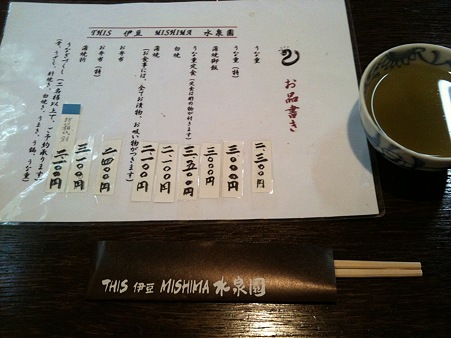 THIS 伊豆 MISHIMA 水泉園
お品書き
うな重 二、三〇〇円
うな重(特) 三、〇〇〇円
蒲焼御飯 三、〇〇〇円
うなぎ定食(定食は肝の吸物が付きます) 三、五〇〇円
白焼 二、一〇〇円
蒲焼 二、一〇〇円
(お食事には、全てお漬物、お吸い物がつきます)
お弁当 二、四〇〇円
お弁当(特) 三、一〇〇円
蒲焼折 二、一〇〇円
うなぎづくし(二名様以上で、ご予約承ります)
THIS 伊豆 MISHIMA 水泉園